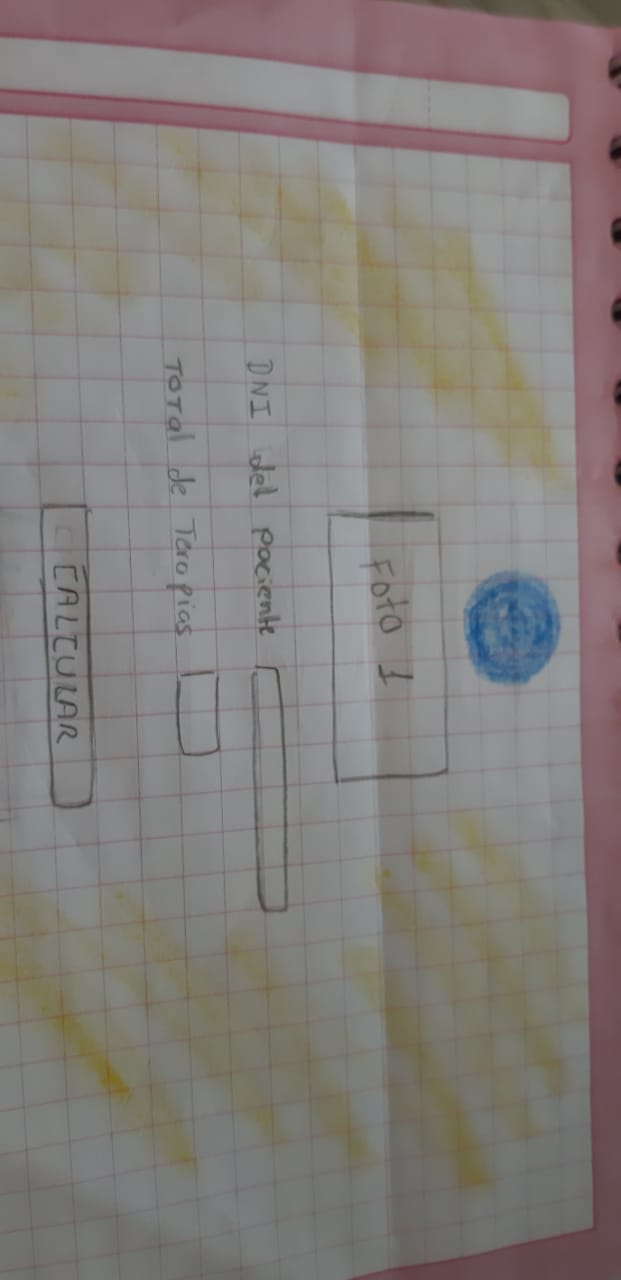 Foto 1
DNI del paciente
TOTal de Terapias
CALCULAR